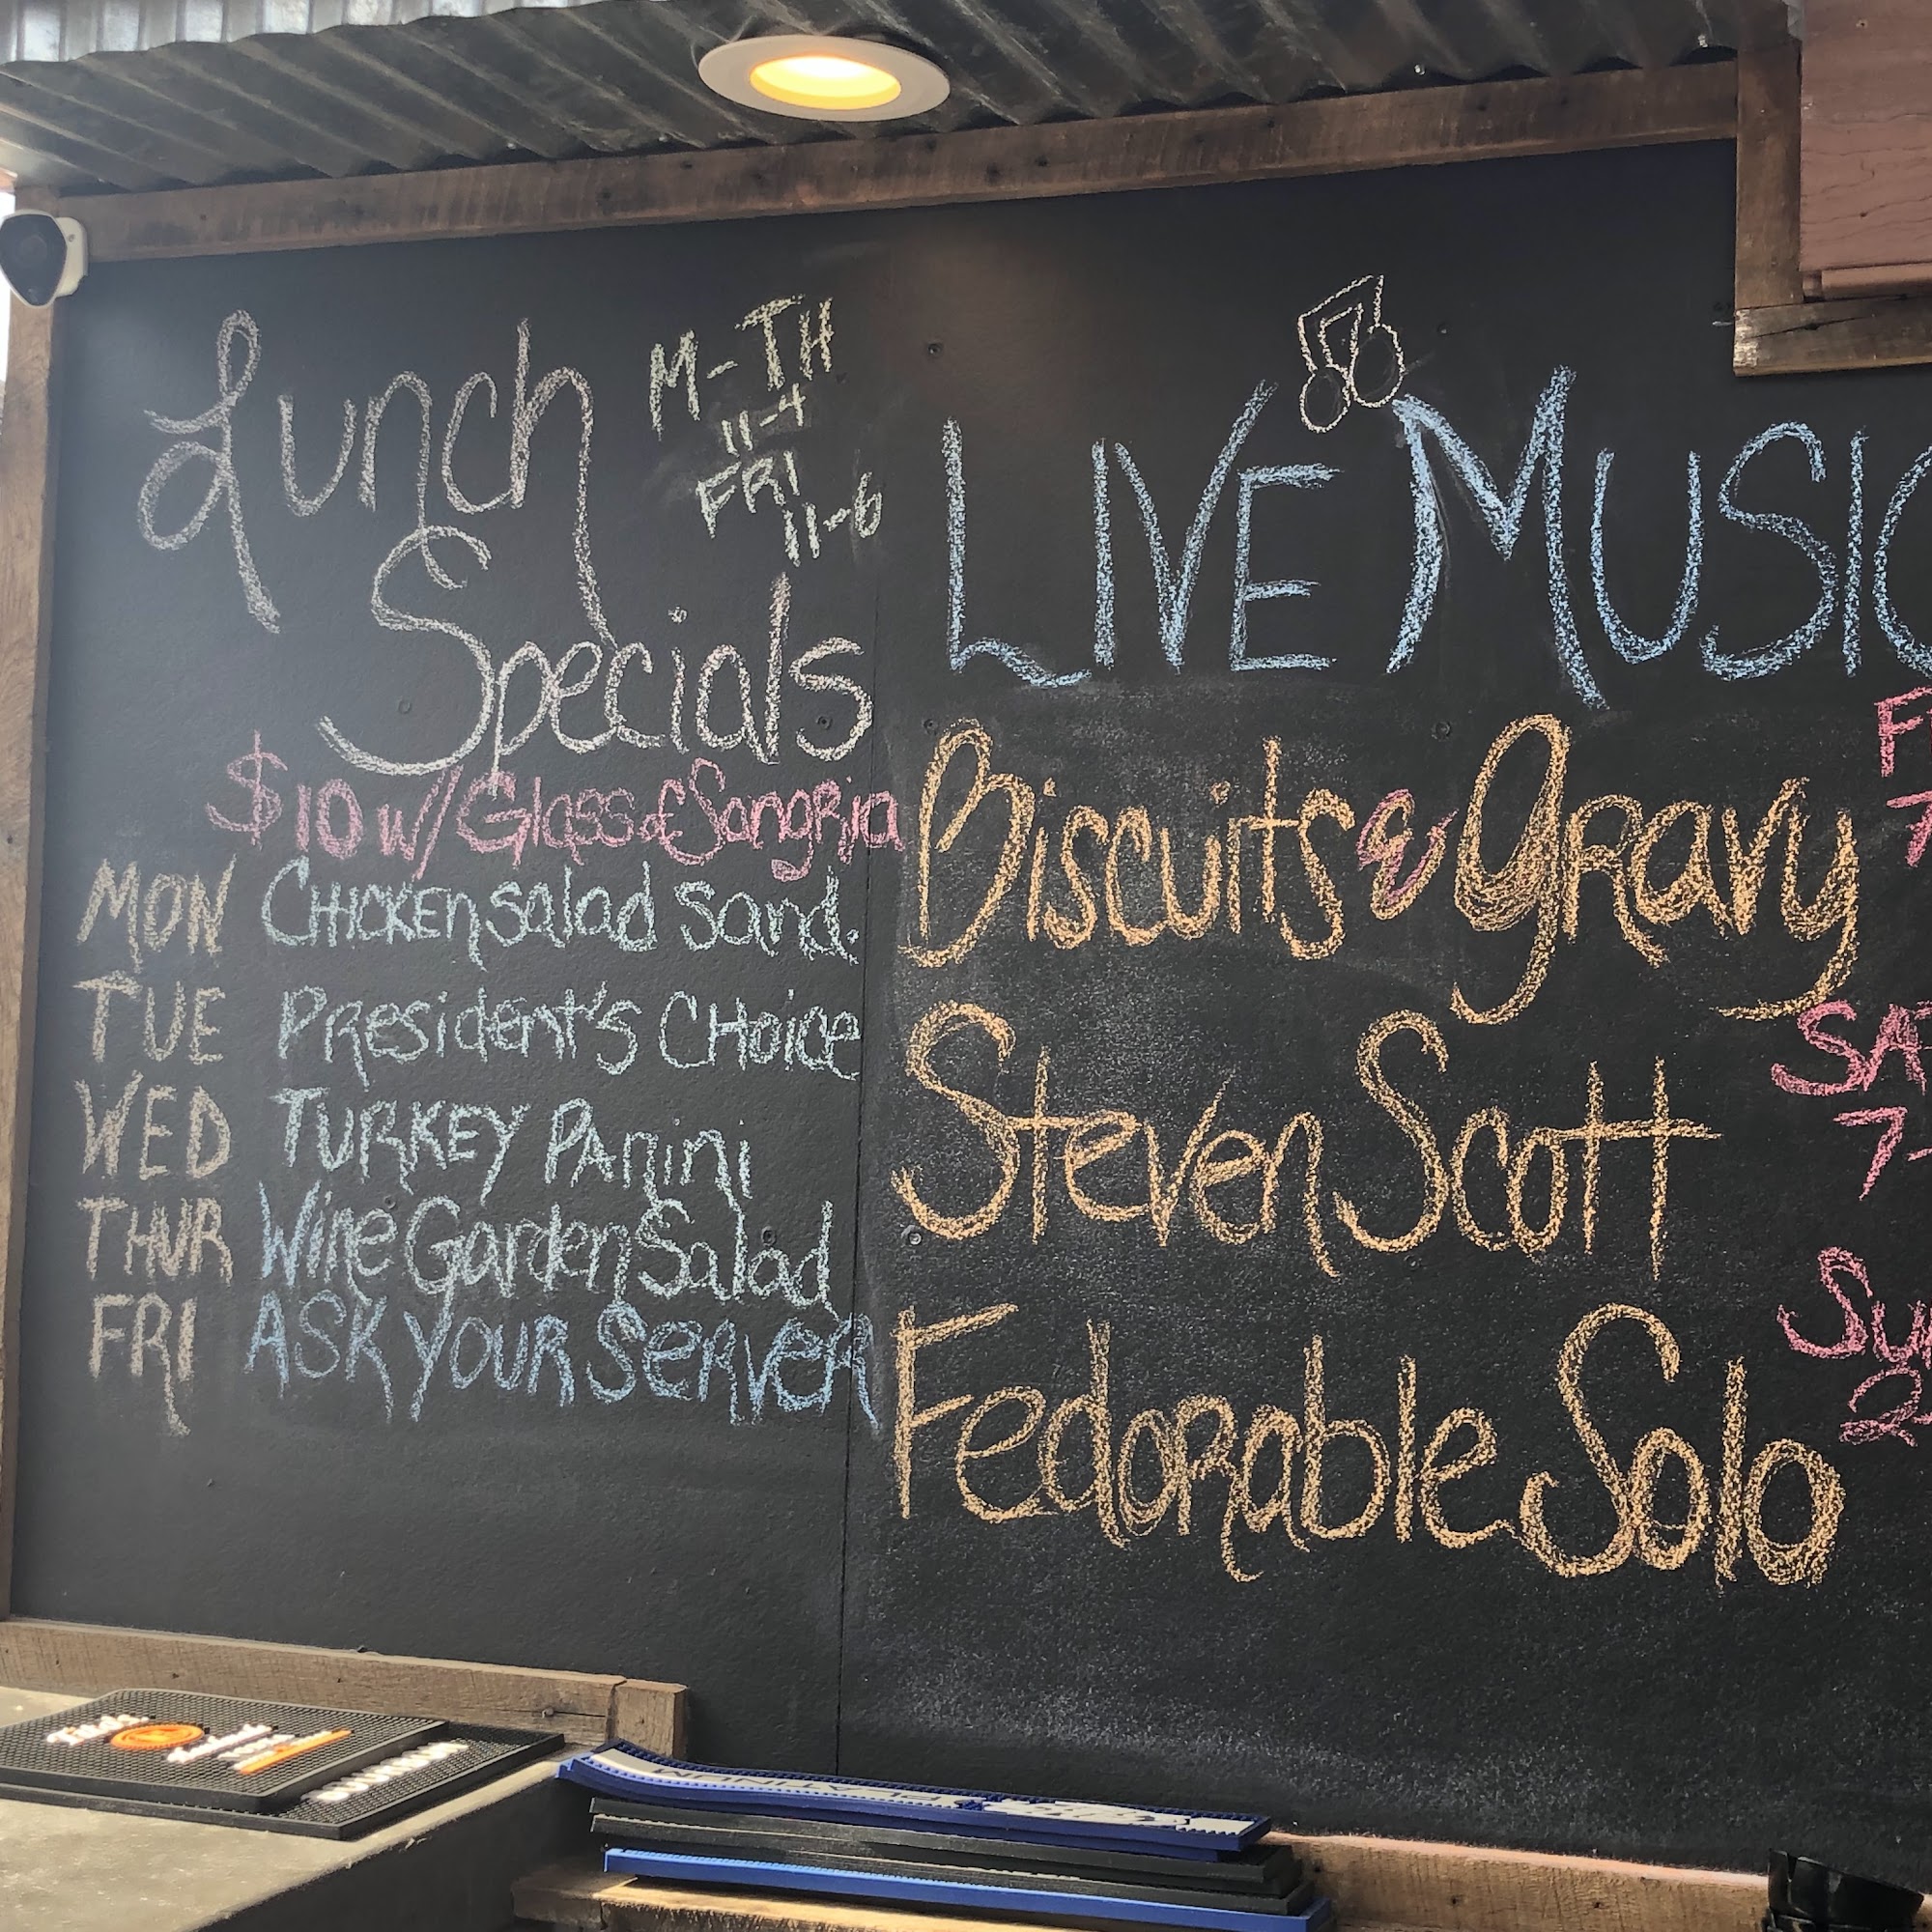 Lunch
Specials
M-TH
11-4
FRI
11-6
$10 w/ Glass of Sangria
MON CHICKEN Salad Sand.
TUE President's CHoice
WED TURKEY PAnini
THUR Wine Garden Salad
FRI ASK YOUR Server
LIVE MUSIC
Biscuits & Gravy
Steven Scott
SAT
7-
Fedorable Solo
2